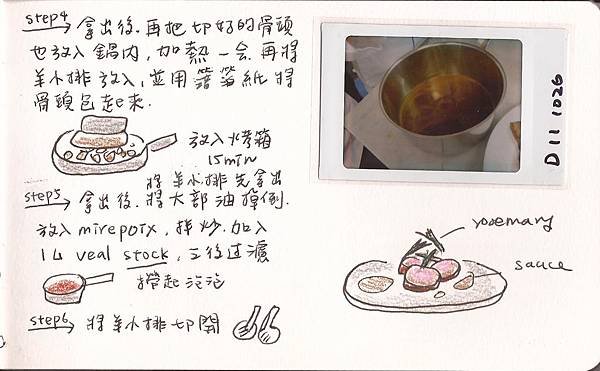 step4 → 拿出後.再把切好的骨頭
也放入鍋內,加熱一会.再將
羊小排放入,並用箔紙將
骨頭包起來.
放入烤箱
15min
將羊小排先拿出
step5 → 拿出後.將大部油掉倒.
放入mirepoix,拌炒.加入
1L veal stock,三後过濾
撈起泡泡
step6 → 將羊小排切開
D11 1026
rosemary
sauce